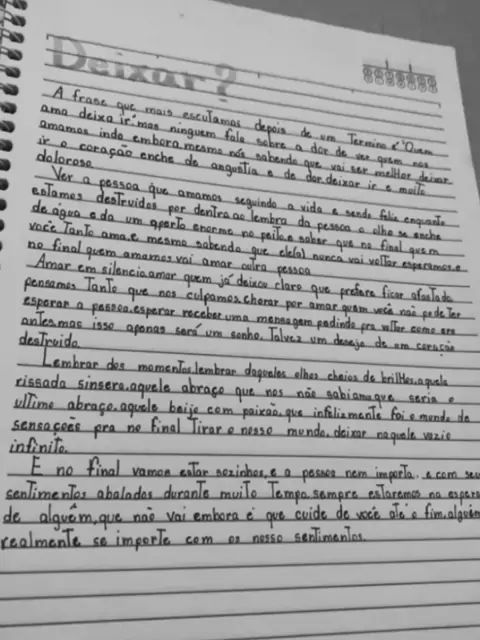 Deixar?
A frase que mais escutamos depois de um Termino é "Quem
ama deixa ir" mas ninguem fala sobre a dor de ver quem nos
amamos indo embora, mesmo nós sabendo que vai ser melhor deixar
ir o coração enche de angustia e de dor. deixar ir e muito
doloroso.
Ver a pessoa que amamos seguindo a vida e sendo feliz enquanto
estamos destruidos por dentro ao lembra da pessoa o olho se enche
de água e da um aperto enorme no peito, e saber que no final quem
você Tanto ama, e mesmo sabendo que ele(a) nunca vai voltar, esperamos, e
no final quem amamos vai amar outra pessoa
Amar em silencio, amar quem já deixou claro que prefere ficar afastado
pensamos Tanto que nos culpamos, chorar por amar quem você não pode ter
esperar a pessoa, esperar receber uma mensagem pedindo pra voltar como era
antes, mas isso apenas será um sonho. Talvez um desejo de um coração
destruido.
Lembrar dos momentos, lembrar daqueles olhos cheios de brilhos, aquela
rissada sinsera, aquele abraço que nos não sabiamos que seria o
ultimo abraço, aquele beijo com paixão, que infelismente foi o mundo de
sensações pra no final Tirar o nosso mundo, deixar naquele vazio
infinito.
E no final vamos estar sozinhos, e a pessoa nem importa.. e com seu
sentimentos abalados durante muito Tempo, sempre estaremos na espera
de alguêm, que não vai embora é que cuide de você até o fim, alguém
realmente se importe com os nosso sentimentos.